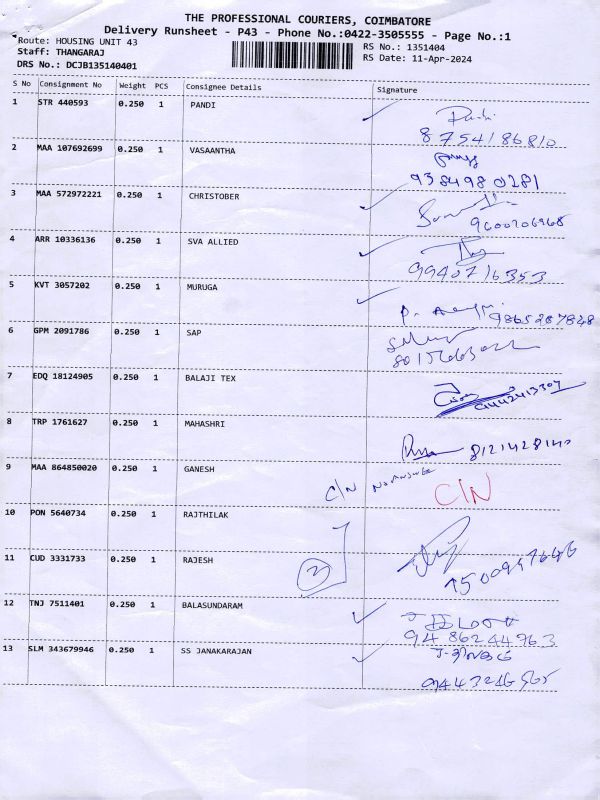 THE PROFESSIONAL COURIERS, COIMBATORE
Delivery Runsheet - P43 - Phone No.:0422-3505555 - Page No.:1
Route: HOUSING UNIT 43
Staff: THANGARAJ
DRS No.: DCJB135140401
RS No.: 1351404
RS Date: 11-Apr-2024
S No Consignment No Weight PCS Consignee Details Signature
1 STR 440593 0.250 1 PANDI
8754186810
2 MAA 107692699 0.250 1 VASAANTHA
9384980281
3 MAA 572972221 0.250 1 CHRISTOBER
9600206968
4 ARR 10336136 0.250 1 SVA ALLIED
9940716353
5 KVT 3057202 0.250 1 MURUGA
9865287828
6 GPM 2091786 0.250 1 SAP
7 EDQ 18124905 0.250 1 BALAJI TEX
9442413307
8 TRP 1761627 0.250 1 MAHASHRI
8121428140
9 MAA 864850020 0.250 1 GANESH
C/N C/N
10 PON 5640734 0.250 1 RAJTHILAK
11 CUD 3331733 0.250 1 RAJESH
12 TNJ 7511401 0.250 1 BALASUNDARAM
9486244763
13 SLM 343679946 0.250 1 SS JANAKARAJAN